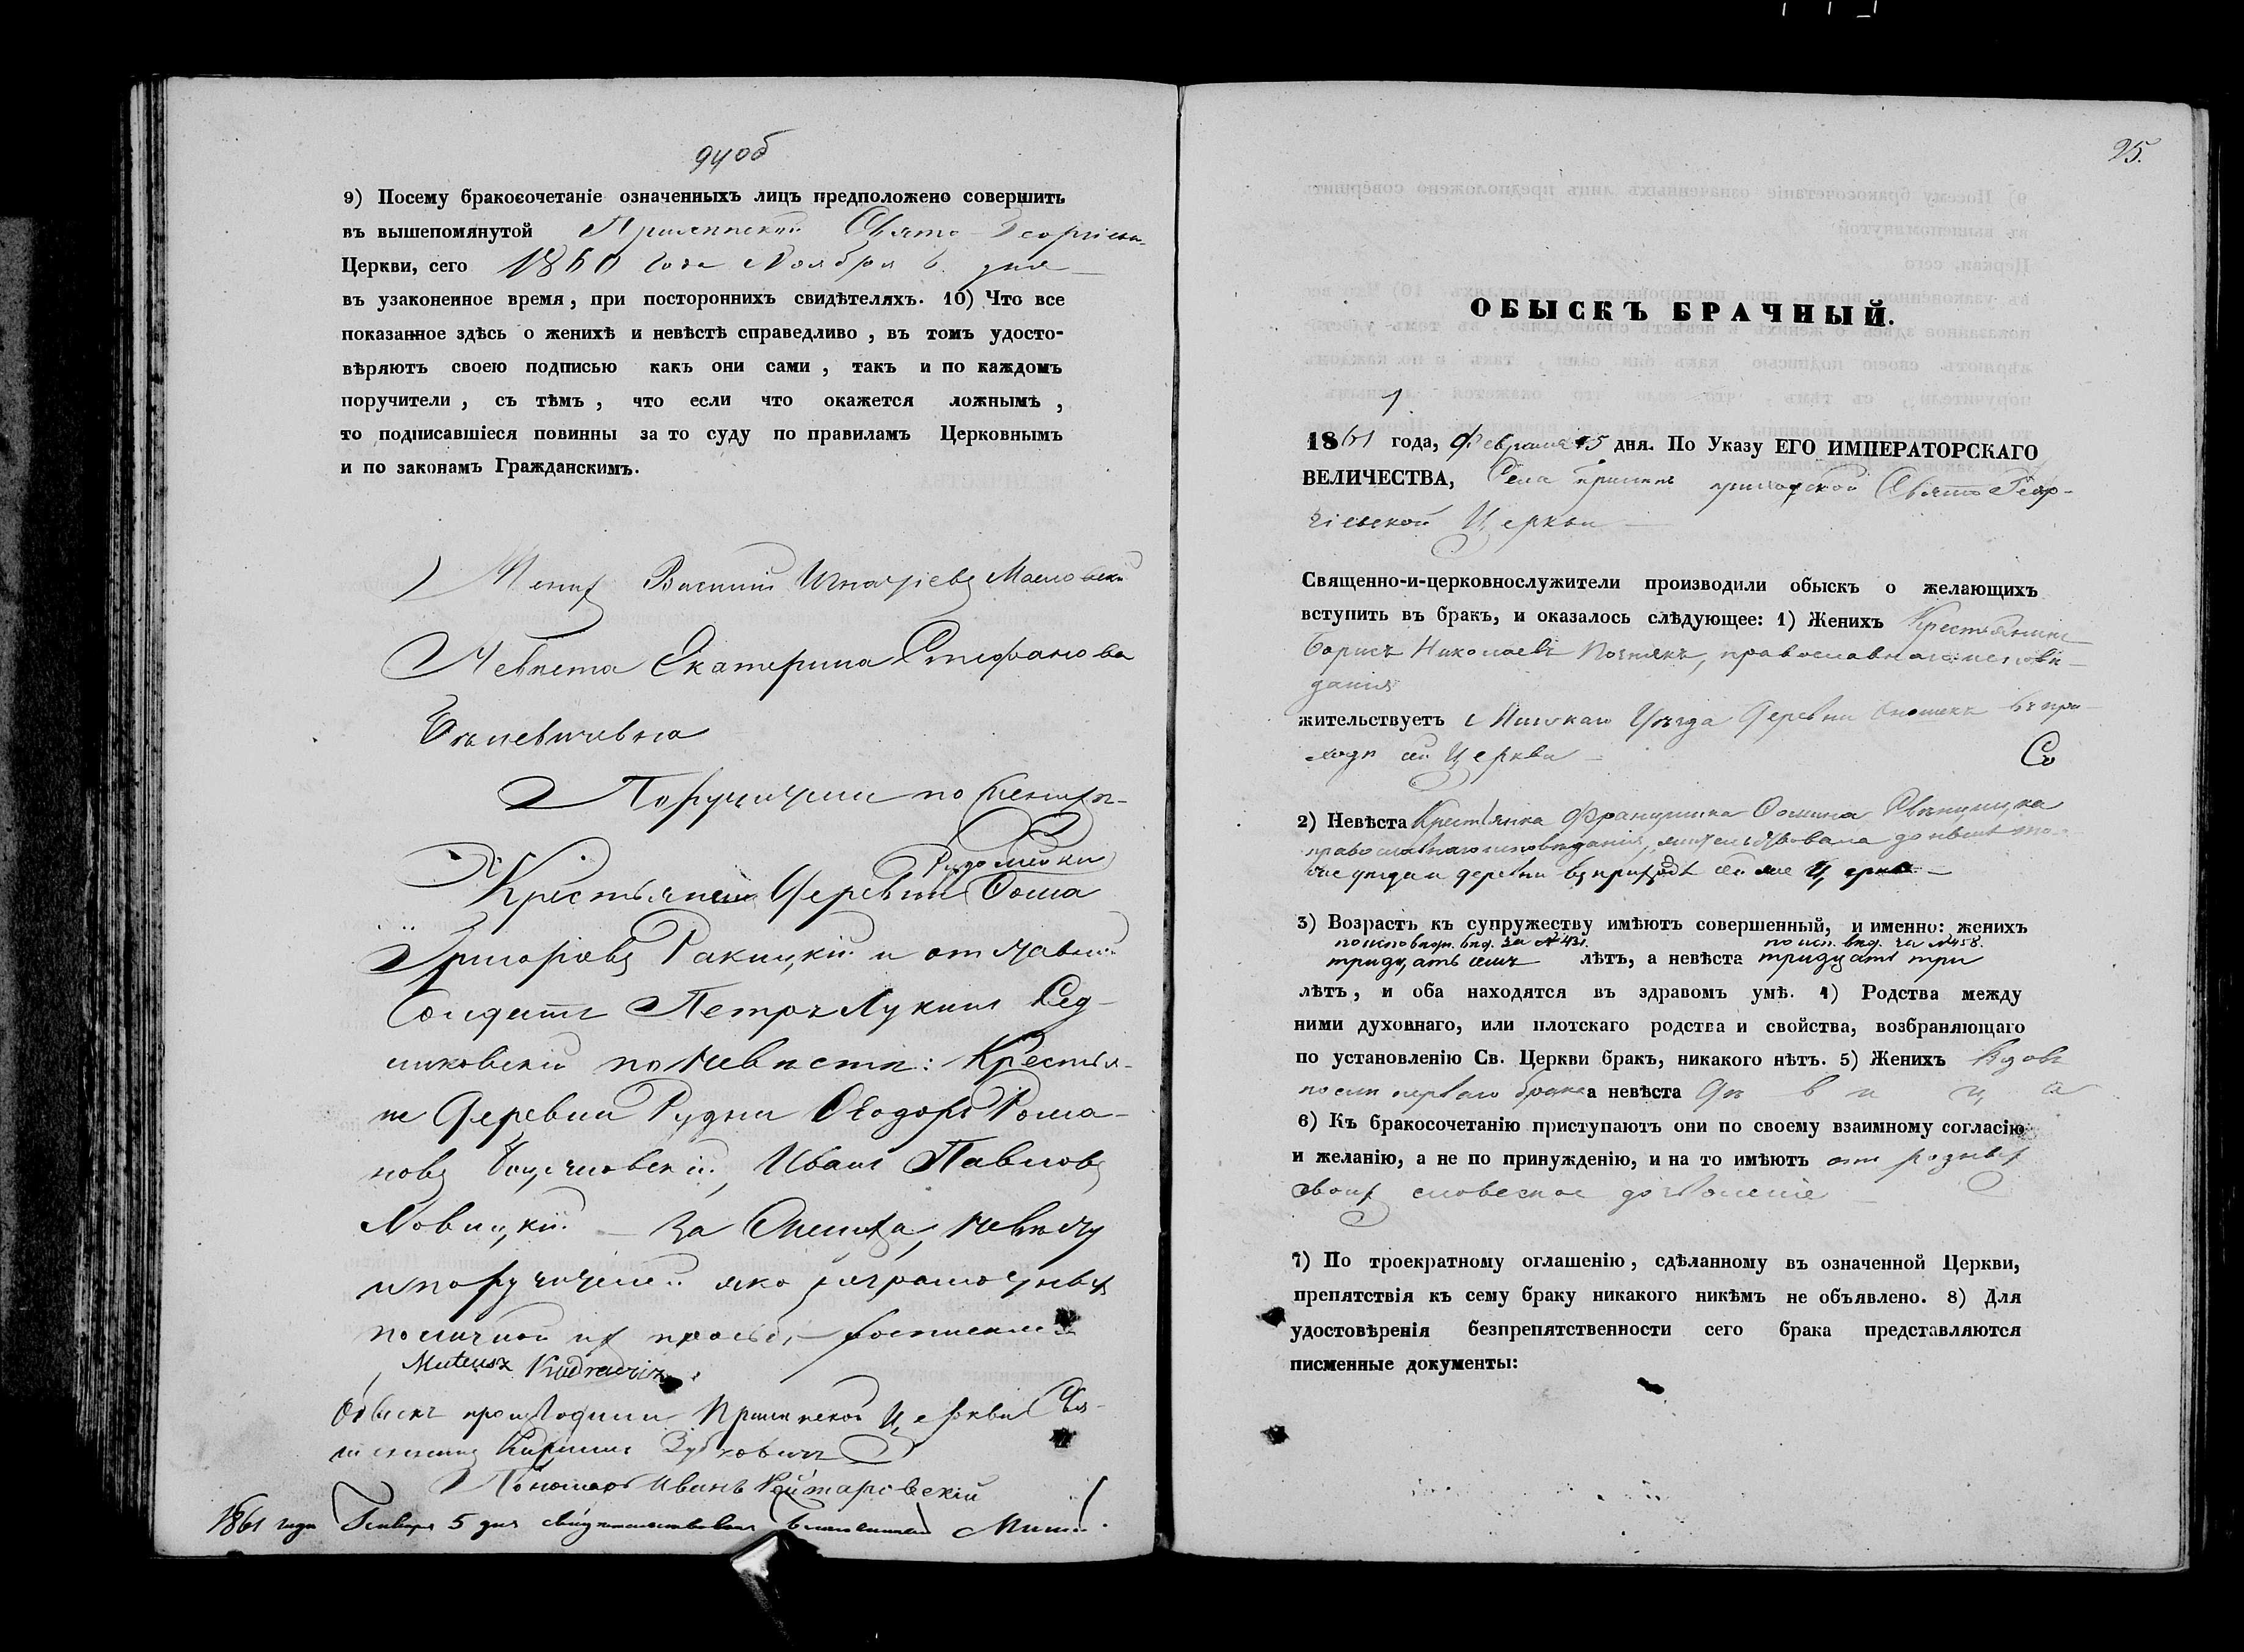 94об
9) Посему бракосочетаніе означенныхъ лицъ предположено совершить
въ вышепомянутой Прилепской Свято Георгіев-
Церкви, сего 1860 года Ноября 6. дня
въ узаконенное время, при постороннихъ свидѣтеляхъ. 10) Что все
показанное здѣсь о женихѣ и невѣстѣ справедливо, въ томъ удосто-
вѣряютъ своею подписью какъ они сами, такъ и по каждомъ
поручители, съ тѣмъ, что если что окажется ложнымъ,
то подписавшіеся повинны за то суду по правиламъ Церковнымъ
и по законамъ Гражданскимъ.
Женихъ Василій Игнатіевъ
Невѣста Екатерина Стефанова
Поручители по Женихѣ
Крестьяне Деревни Фома
Григоріевъ Ракицкій и отставный
Солдатъ Петръ Лукинъ Сед-
по Невѣстѣ: Крестья-
не Деревни Рудни Ѳеодоръ Рома-
новъ Иванъ Павловъ
Новицкій За Жениха, невѣсту
и поручителей яко неграмотныхъ
по личной их просьбѣ
Mateusz Kudrewicz
Обыскъ производили Прилепской Церкви Свя-
щенникъ Кириллъ
Пономарь Иванъ
1861 года Генваря 5 дня свидѣтельствовалъ
25.
ОБЫСКЪ БРАЧНЫЙ.
1
1861 года, Февраля 15 дня. По Указу ЕГО ИМПЕРАТОРСКАГО
ВЕЛИЧЕСТВА, Села Прилепъ приходской Свято Геор-
гіевской Церкви
Священно-и-церковнослужители производили обыскъ о желающихъ
вступить въ бракъ, и оказалось слѣдующее: 1) Женихъ Крестьянинъ
Борисъ Николаевъ православнаго исповѣ-
данія
жительствуетъ Минскаго Уѣзда Деревни въ при-
ходѣ сей Церкви
2) Невѣста Крестьянка Францишка Ѳомина
православнаго исповѣданія, жительствовала до нынѣ то-
гоже уѣзда и деревни въ приходѣ сей же Церкви
3) Возрастъ къ супружеству имѣютъ совершенный, и именно: женихъ
по исповѣдн. вѣд. за № 431. по исп. вѣд. за № 458.
тридцать семь лѣтъ, а невѣста тридцать три
лѣтъ, и оба находятся въ здравомъ умѣ. 4) Родства между
ними духовнаго, или плотскаго родства и свойства, возбраняющаго
по установленію Св. Церкви бракъ, никакого нѣтъ. 5) Женихъ Вдовъ
послѣ перваго брака а невѣста Дѣвица
6) Къ бракосочетанію приступаютъ они по своему взаимному согласію
и желанію, а не по принужденію, и на то имѣютъ отъ родныхъ
своихъ словесное дозволеніе
7) По троекратному оглашенію, сдѣланному въ означенной Церкви,
препятствія къ сему браку никакого никѣмъ не объявлено. 8) Для
удостовѣренія безпрепятственности сего брака представляются
писменные документы: